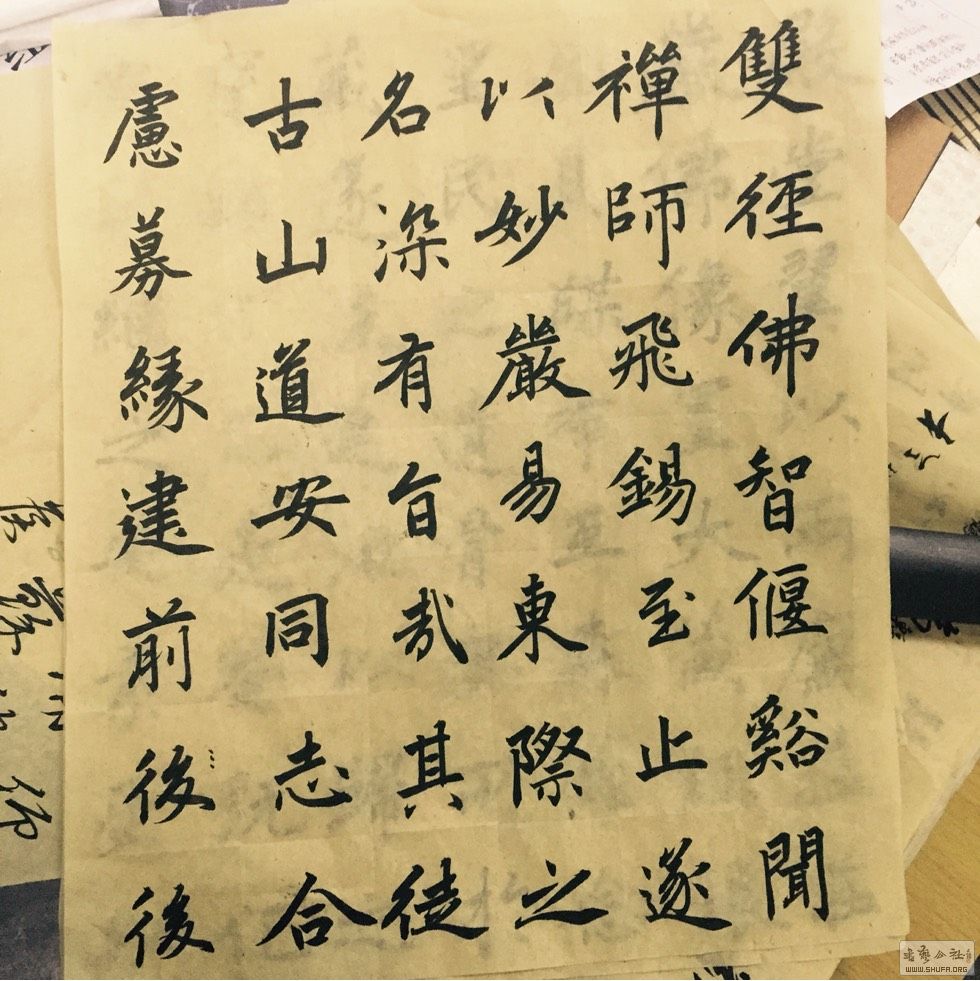 雙徑佛智偃谿聞
禪師飛錫至止遂
以妙嚴易東際之
名深有旨哉其徒
古山道安同志合
慮募緣建前後後
書藝公社
WWW.SHUFA.ORG